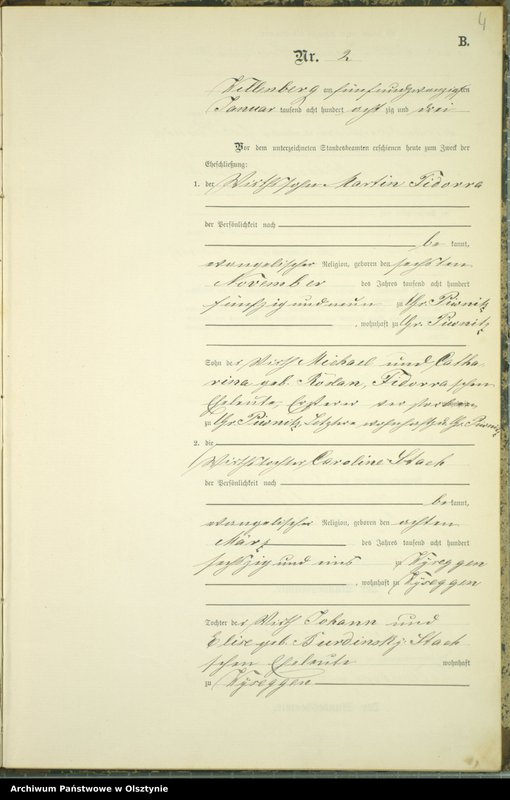 4
B.
Nr. 2
Willenberg am fünfundzwanzigsten
Januar tausend acht hundert acht zig und drei
Vor dem unterzeichneten Standesbeamten erschienen heute zum Zweck der
Eheschließung:
1. der Wirthssohn Martin Fidorra
der Persönlichkeit nach
be kannt,
evangelischer Religion, geboren den sechsten
November des Jahres tausend acht hundert
fünfzig und neun zu Gr. Piwnitz
, wohnhaft zu Gr. Piwnitz
Sohn der Wirth Michael und Catha
rina geb. Kodan, Fidorra schen
Eheleute, Ersterer verstorben
zu Gr. Piwnitz Letztere wohnhaft zu Gr. Piwnitz
2. die
Wirthstochter Caroline Stach
der Persönlichkeit nach
be kannt,
evangelischer Religion, geboren den achten
März des Jahres tausend acht hundert
sechszig und eins zu Wyseggen
, wohnhaft zu Wyseggen
Tochter der Wirth Johann und
Elise geb. Burdinsky, Stach
schen Eheleute wohnhaft
zu Wyseggen
Archiwum Państwowe w Olsztynie